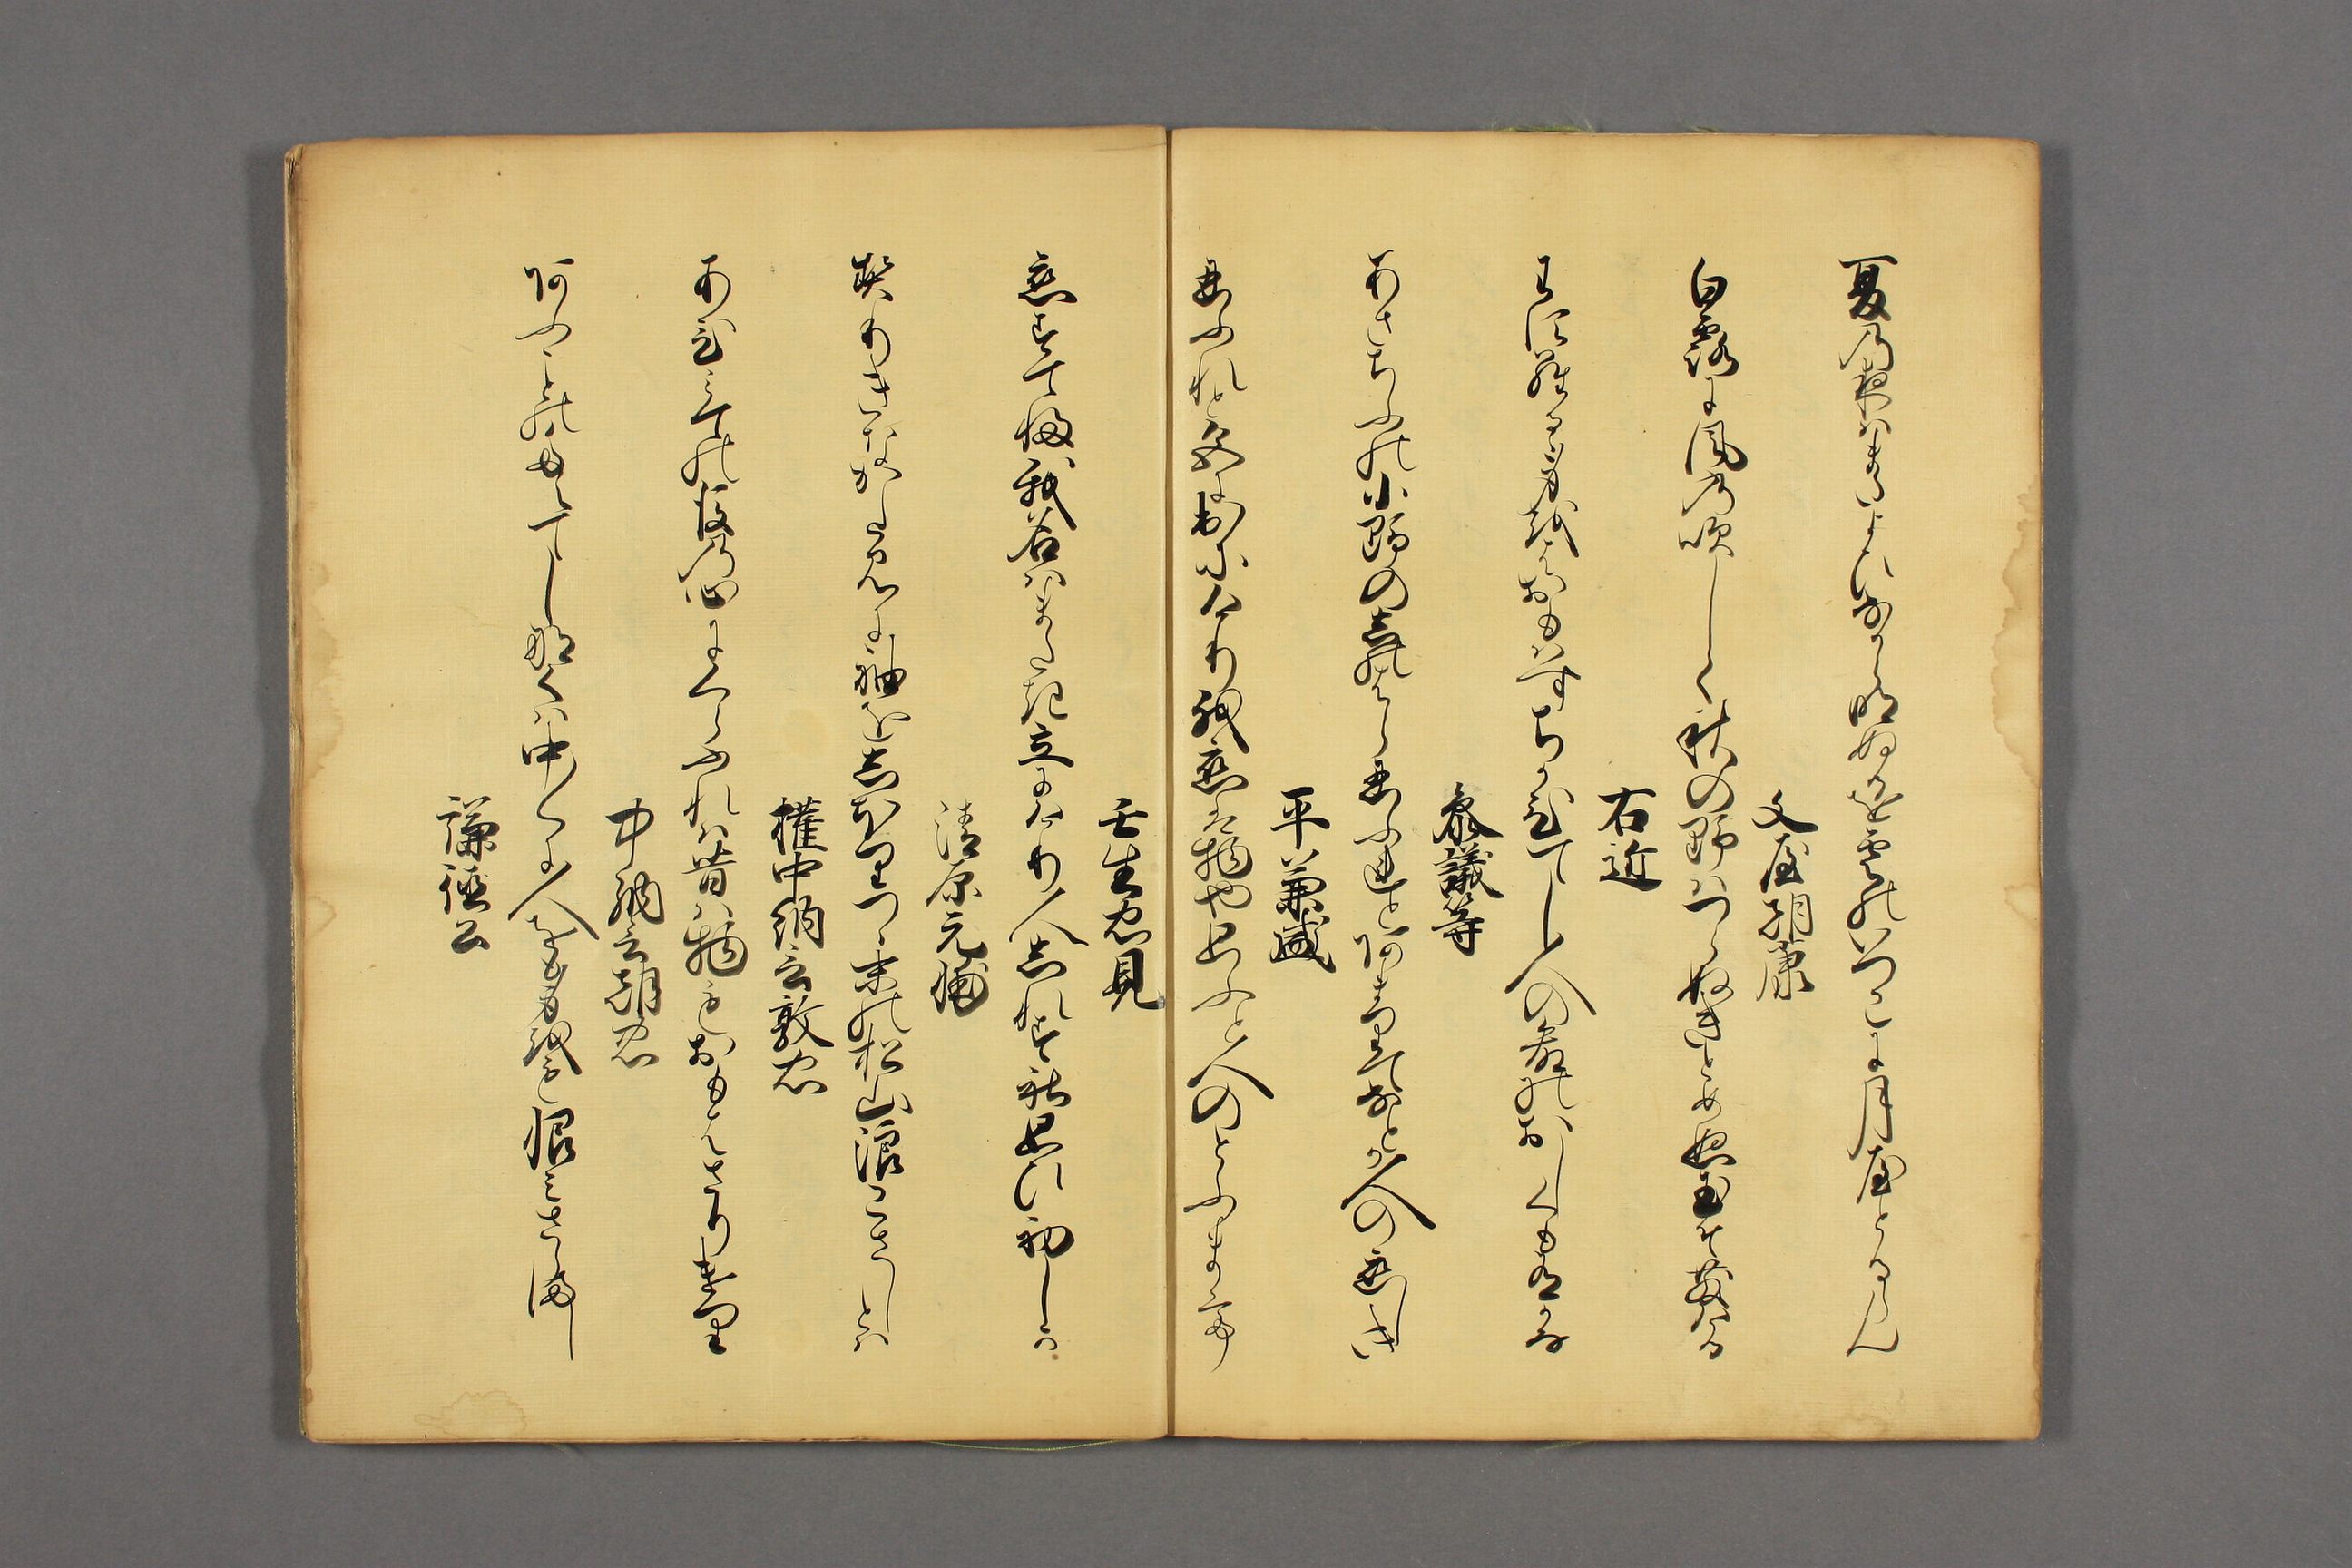 夏乃夜はまたよひなから明ぬるを雲のいつこに月屋とるらん
文屋朝康
白露に風乃吹しく秋の野はつらぬきとめぬ玉そ散ける
右近
わすらるる身をはおもはすちかひてし人の命のおしくも有かな
参議等
あさちふの小野の志のはら忍ふれとあまりてなとか人の恋しき
平兼盛
忍ふれと色に出にけり我恋は物や思ふと人のとふまて
壬生忠見
恋すてふ我名はまたき立にけり人志れすこそ思ひ初しか
清原元輔
契りきなかたみに袖を志ほりつゝ末の松山浪こさしとは
権中納言敦忠
あひみての後の心にくらふれは昔は物もおもはさりけり
中納言朝忠
阿ふことのたえてし那くは中〱に人をも身をも恨みさらまし
謙徳公